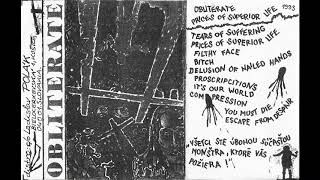 OBLITERATE
OBLITERATE
PRICES OF SUPERIOR LIFE
1993
TEARS OF SUFFERING
PRICES OF SUPERIOR LIFE
FILTHY FACE
BITCH
DELUSION OF NAILED HANDS
PROSCRIPCITIONS
IT'S OUR WORLD
COMPRESSION
YOU MUST DIE
ESCAPE FROM DESPAIR
"VŠETCI STE ÚBOHOU SÚČASŤOU
MONŠTRA, KTORÉ VÁS
POŽIERA!"